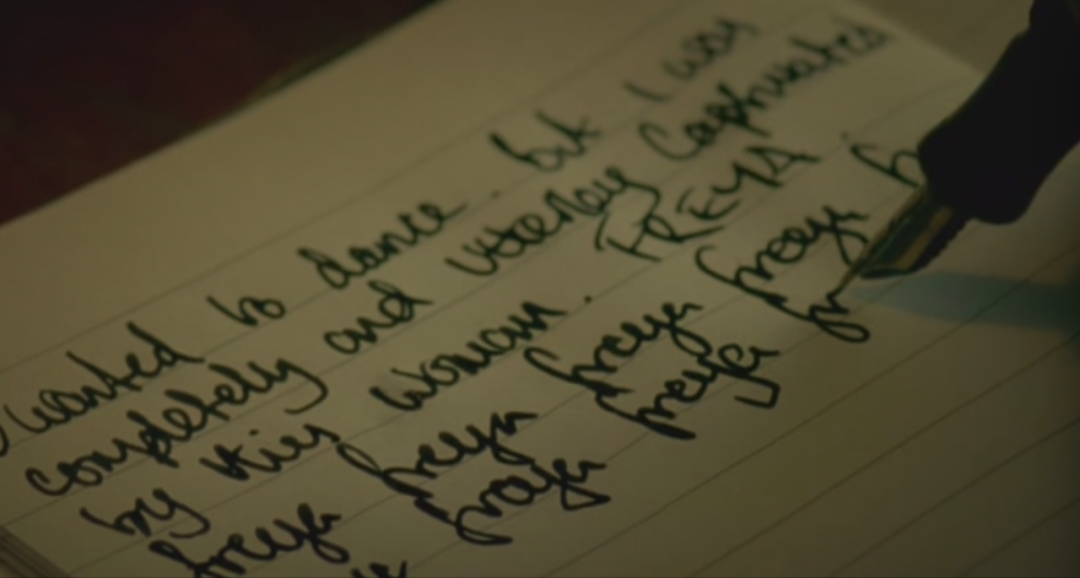 wanted to dance. but I was
completely and utterly captivated
by this woman. FREYA fr
freya freya freya freya
freya freya fr